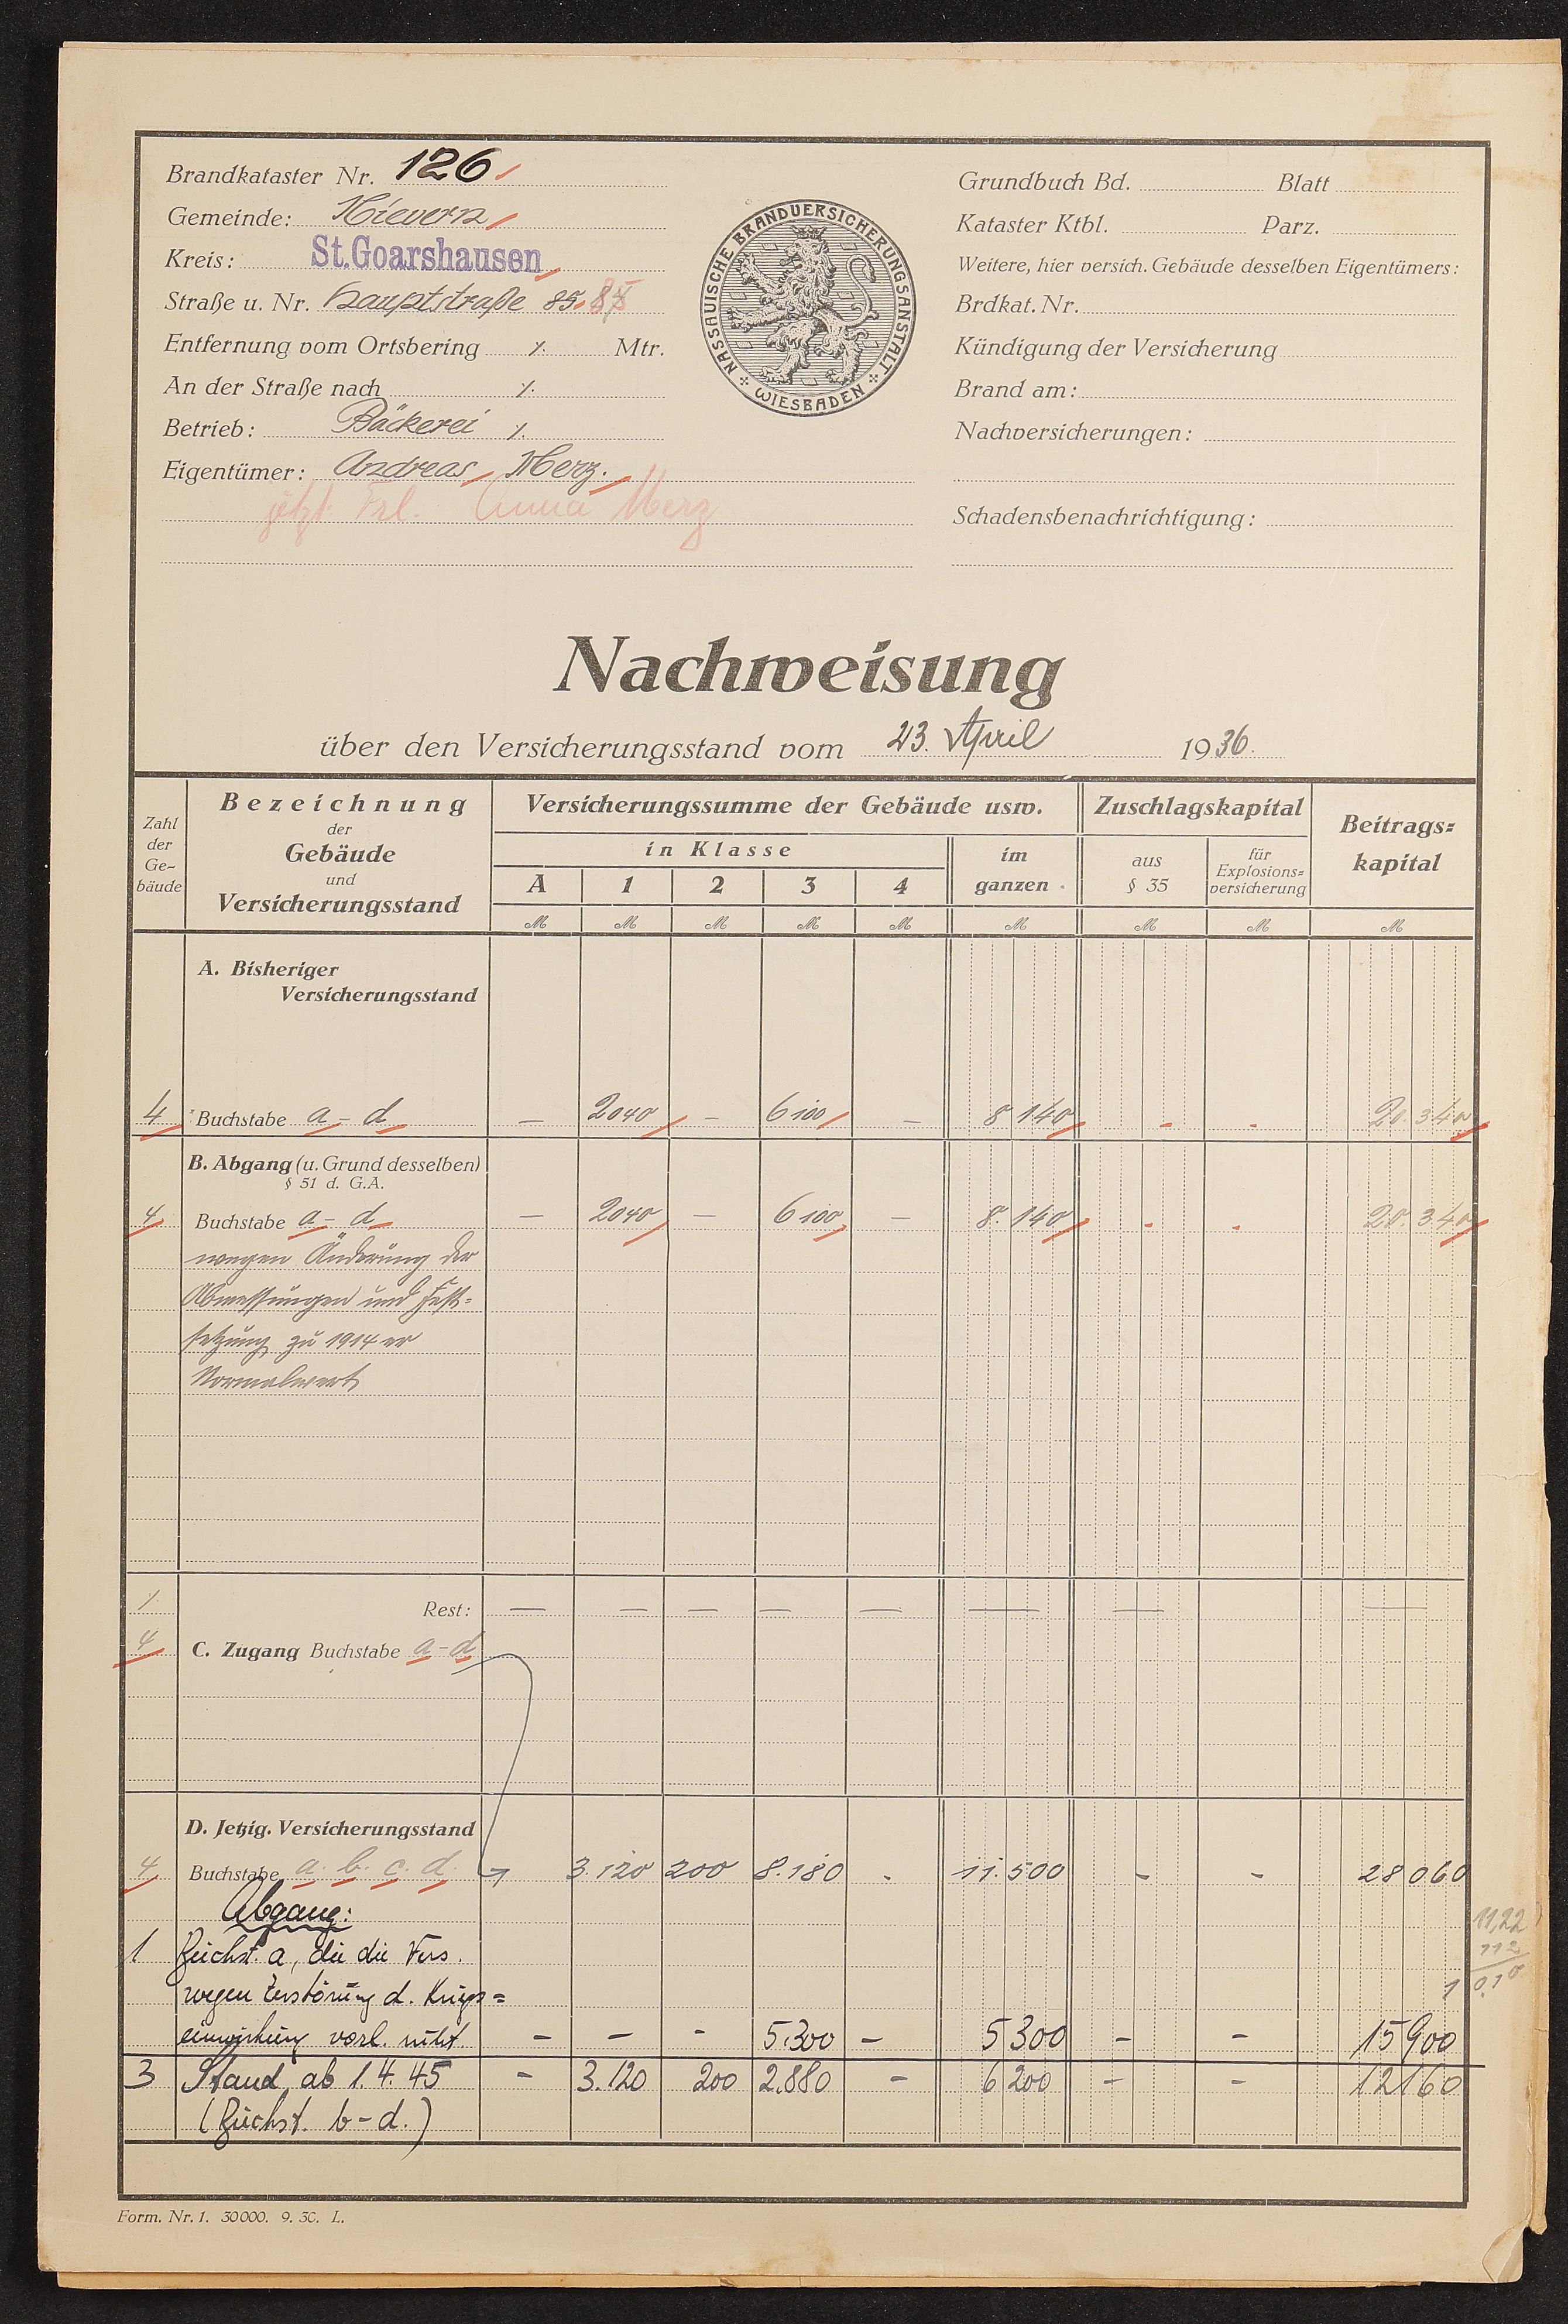 Brandkataster Nr. 126
Gemeinde: Nievern
Kreis: St. Goarshausen
Straße u. Nr. Hauptstraße 85.
Entfernung vom Ortsbering ./. Mtr.
An der Straße nach ./.
Betrieb: Bäckerei ./.
Eigentümer: Andreas Merz.
jetzt Frl. Anna Merz
NASSAUISCHE BRANDVERSICHERUNGSANSTALT
WIESBADEN
Grundbuch Bd. Blatt
Kataster Ktbl. Parz.
Weitere, hier versich. Gebäude desselben Eigentümers:
Brdkat. Nr.
Kündigung der Versicherung
Brand am:
Nachversicherungen:
Schadensbenachrichtigung:
Nachweisung
über den Versicherungsstand vom 23. April 1936.
Zahl der Ge-bäude
Bezeichnung der Gebäude und Versicherungsstand
Versicherungssumme der Gebäude usw.
in Klasse
A 1 2 3 4
im ganzen
Zuschlagskapital
aus § 35
für Explosions-versicherung
Beitrags-kapital
M M M M M M M M M
A. Bisheriger
Versicherungsstand
4 Buchstabe a - d — 2040 — 6100 — 8 140 - - 20.340
B. Abgang (u. Grund desselben)
§ 51 d. G.A.
4 Buchstabe a - d — 2040 — 6100 — 8.140 - - 20.340
wegen Änderung der
Abmessungen und Fest-
setzung zu 1914 er
Normalwert
./. Rest: — — — — — — — —
4 C. Zugang Buchstabe a - d
D. Jetzig. Versicherungsstand
4 Buchstabe a. b. c. d. 3.120 200 8.180 - 11.500 - - 28060
Abgang:
1 Buchst. a, da die Vers.
wegen Zerstörung d. Kriegs=
einwirkung vorl. ruht - - - 5.300 - 5300 - - 15900
3 Stand ab 1.4.45 - 3.120 200 2.880 - 6200 - - 12160
(Buchst. b-d.)
11,22
Form. Nr. 1. 30000. 9. 30. L.